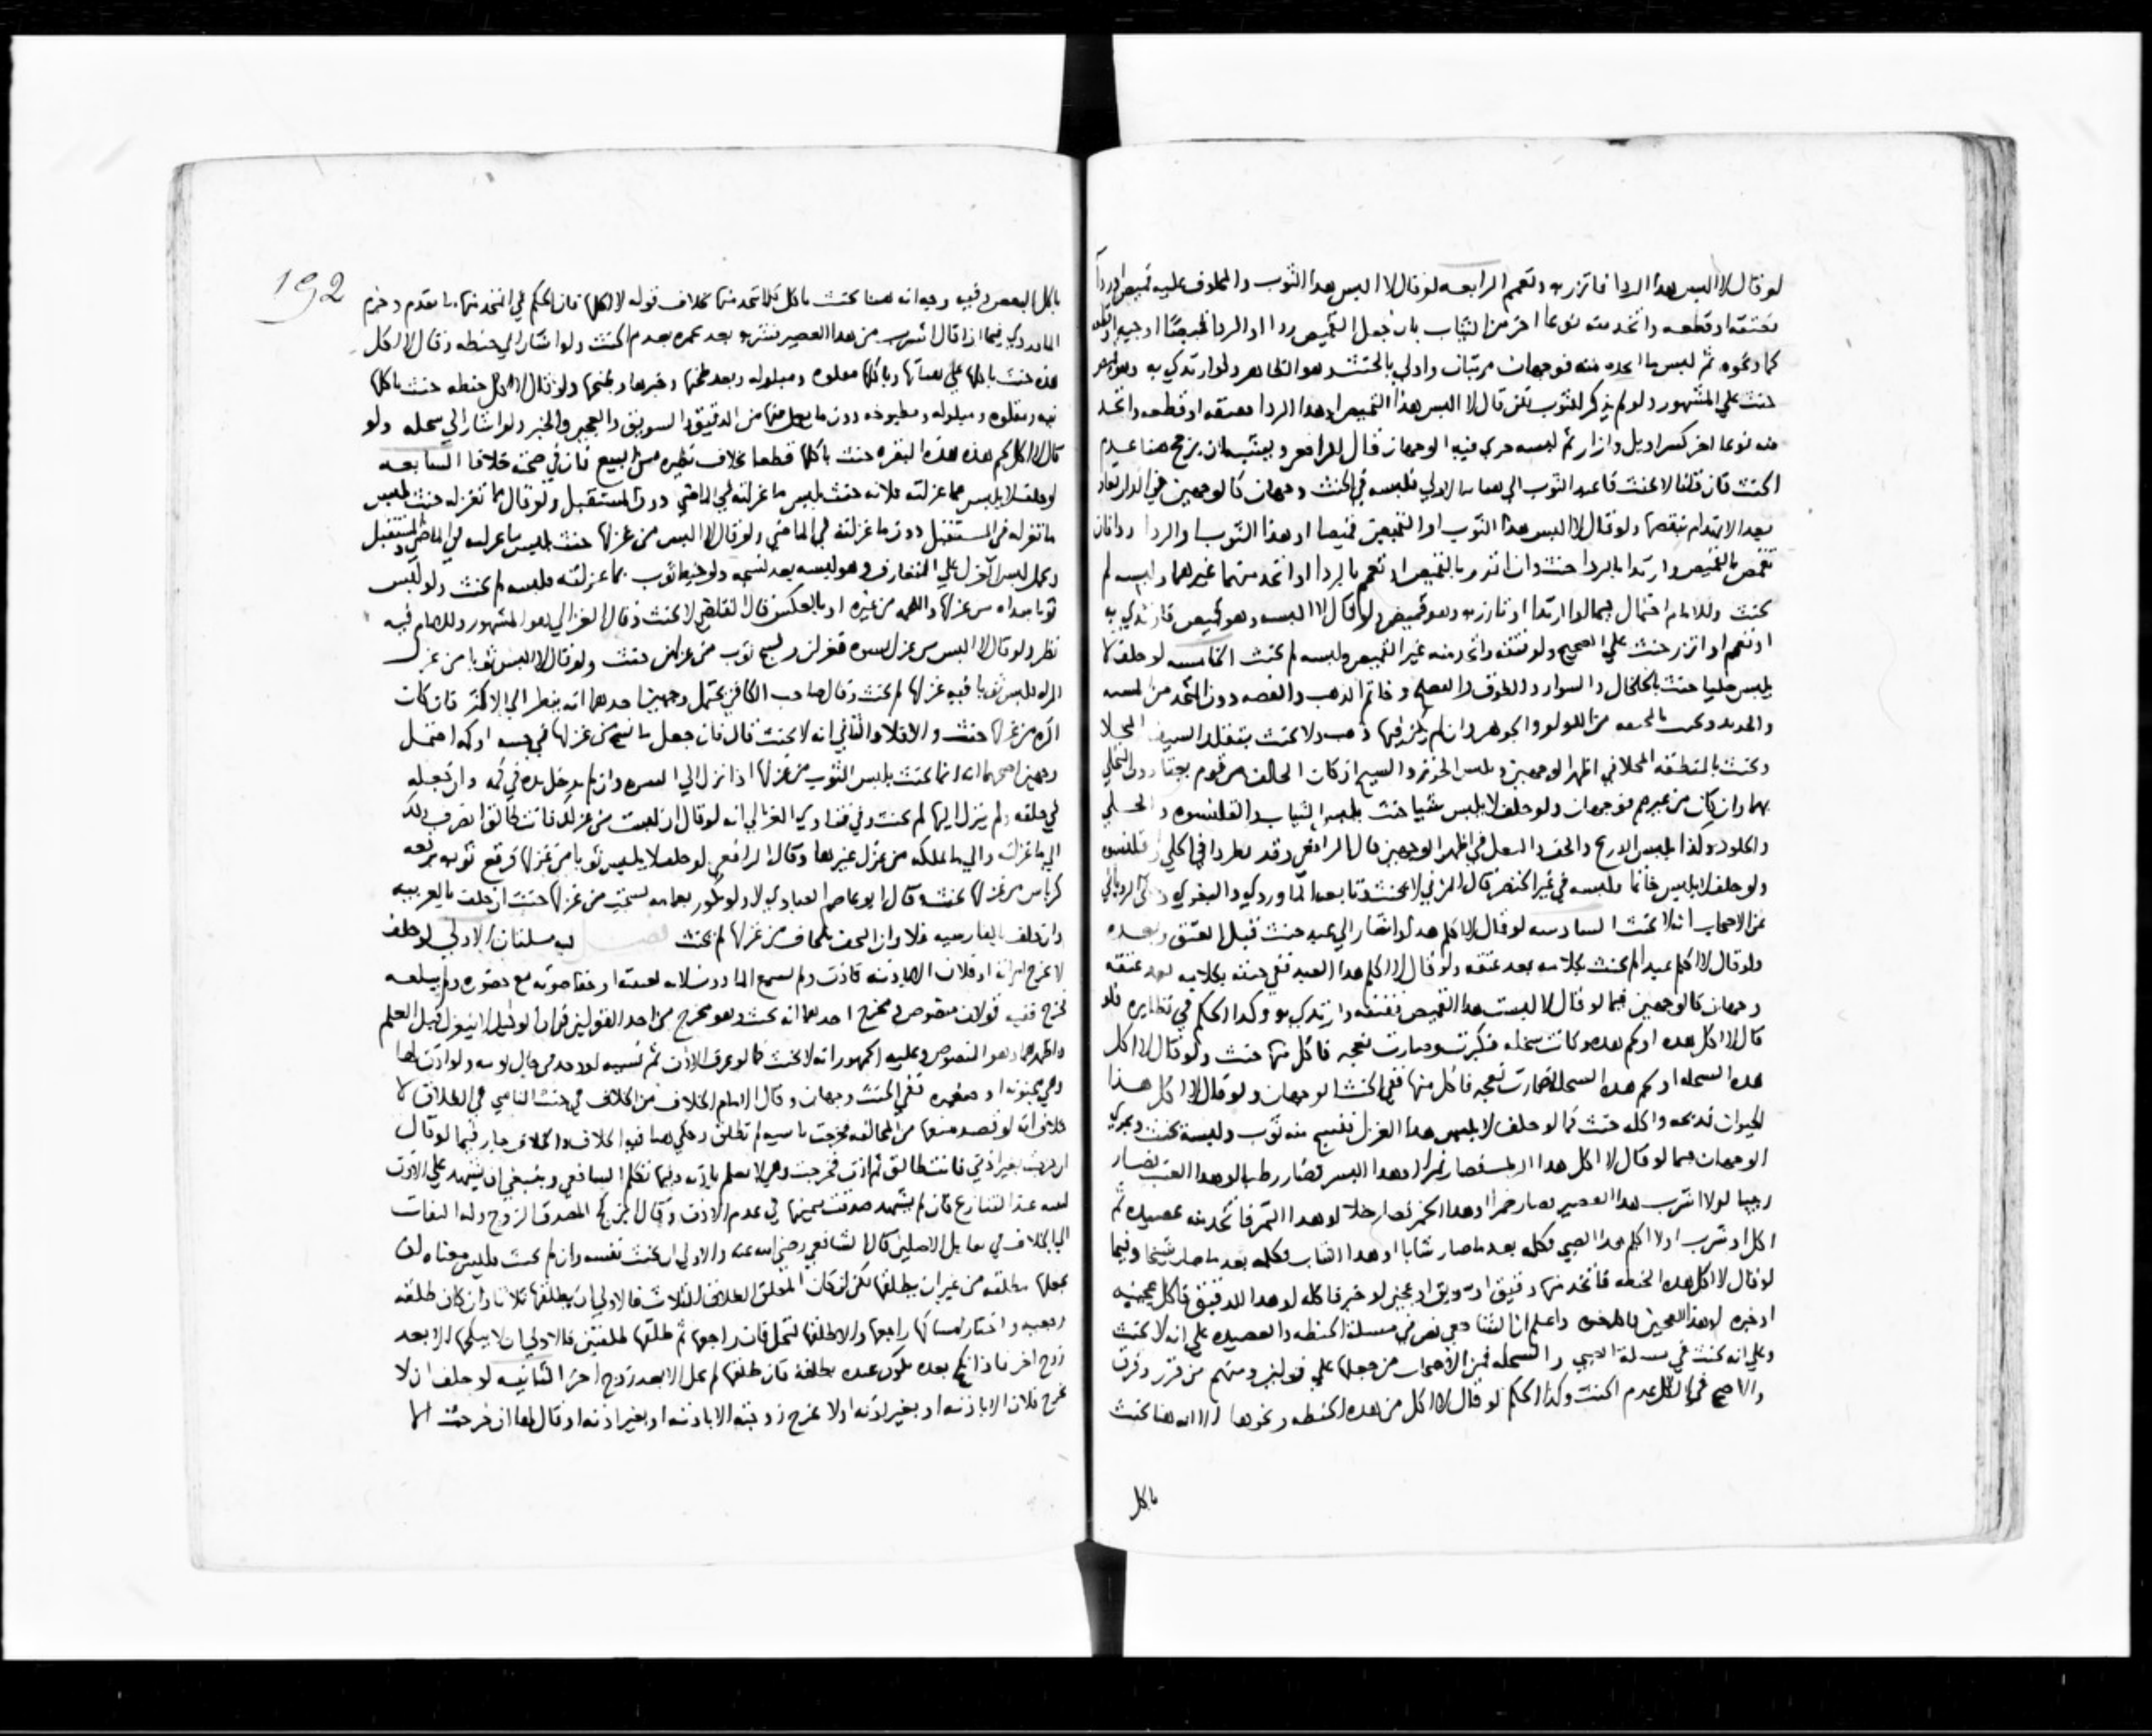 لو قال لا البس هذا الردا فاتزر به وتعمم الرابعه لو قال لا البس هذا الثوب والمحلوف عليه قميص او ردا
ففتقه او قطعه واتخذ منه نوعا اخر من الثياب بان جعل القميص ردا او الردا قميصا او جبه
ثم لبس ما اتخذه منه فوجهان مرتبان واولي بالحنث وهو الظاهر ولو ارتدي به
حنث علي المشهور ولو لم يذكر الثوب بل قال لا البس هذا القميص او هذا الردا ففتقه او قطعه واتخذ
منه نوعا اخر كسراويل وازار ثم لبسه جري فيه الوجهان قال الرافعي ويشبه ان يرجح هنا عدم
الحنث فان قلنا لا يحنث فاعيد الثوب الي هياته الاولي فلبسه في الحنث وجهان كالوجهين في الدار تعاد
بعد الانهدام بنقضها ولو قال لا البس هذا الثوب او القميص قميصا او هذا الثوب او الردا ردا فان
تقمص بالقميص وارتدا بالردا حنث وان اتزر بالقميص او تعمم بالردا او اتخذ منهما غيرهما ولبسه لم
يحنث وللامام احتمال فيما لو ارتدا او اتزر به وهو قميص ولو قال لا البسه وهو قميص فارتدي به
او تعمم او اتزر حنث علي الصحيح ولو فتقه واتخذ منه غير القميص ولبسه لم يحنث الخامسه لو حلف لا
يلبس حليا حنث بالخلخال والسوار والطوق والدملج وخاتم الذهب والفضه دون المتخذ من
اللولو والجوهر وان لم يكن فيها ذهب ولا يحنث بتقلد السيف المحلا
ويحنث بالمنطقه المحلاه في اظهر الوجهين وبلبس الخرز والسبج ان كان الحالف من قوم يعتادون التحلي
بهما وان كان من غيرهم فوجهان ولو حلف لا يلبس شيا حنث بلبس الثياب والقلنسوه والحلي
والجلود وكذا بلبس الدرع والخف والنعل في اظهر الوجهين قال الرافعي وقد يطردا في الحلي والقلنسوه
ولو حلف لا يلبس خاتما فلبسه في غير الخنصر قال المزني لا يحنث وتابعه الماوردي والبغوي وحكي الروياني
عن الاصحاب انه يحنث السادسه لو قال لا اكلم هذا واشار الي عبد حنث قبل العتق وبعده
ولو قال لا اكلم عبدا لم يحنث بكلامه بعد عتقه ولو قال لا اكلم هذا العبد ففي حنثه بكلامه بعد عتقه
وجهان كالوجهين فيما لو قال لا البس هذا القميص ففتقه وارتدي به وكذا الحكم في نظايره فلو
قال لا اكل هذه او لحم هذه وكانت سخله فكبرت وصارت نعجه فاكل منها حنث ولو قال لا اكل
هذه السخله او لحم هذه السخله فصارت نعجه فاكل منها ففي الحنث الوجهان ولو قال لا اكل هذا
الحيوان فذبحه واكله حنث كما لو حلف لا يلبس هذا الغزل فنسج منه ثوب ولبسه يحنث ويجري
الوجهان فيما لو قال لا اكل هذا الرطب فصار تمرا او هذا البسر فصار رطبا او هذا العنب فصار
زبيبا او لا اشرب هذا العصير فصار خمرا او هذا الخمر فصار خلا او هذا التمر فاتخذ منه عصيده ثم
اكل او شرب او لا اكلم هذا الصبي فكلمه بعد ما صار شابا او هذا الشاب فكلمه بعد ما صار شيخا وفيما
لو قال لا اكل هذه الحنطه فاتخذ منها دقيق او سويق او عجين او خبز فاكله او هذا الدقيق فاكل عجينه
او خبزه او هذا العجين فاكل خبزه واعلم ان الشافعي نص في مسلة الحنطه والعصيده علي انه لا يحنث
وعلي انه يحنث في مسلة الصبي والسخله فمن الاصحاب من جعلها علي قولين ومنهم من قرر وفرق
والاصح في الكل عدم الحنث وكذا الحكم لو قال لا اكل من هذه الحنطه ونحوها الا انه هنا يحنث
باكل
192
باكل البعض وفيه وجه انه هنا يحنث باكل كلما اتخذ منها بخلاف قوله لا اكلها فان الحكم في المتخذ منها ما تقدم وجزم
الماوردي فيما اذا قال لا اشرب من هذا العصير فشربه بعد تخمره بعدم الحنث ولو اشار الي حنطه وقال لا اكل
هذه حنث باكلها علي هياتها وباكلها مقلوه ومبلوله وبعد طحنها وخبزها وطبخها ولو قال لا اكل حنطه حنث باكلها
نيه ومقلوه ومبلوله ومطبوخه دون ما يعمل منها من الدقيق والسويق والعجين والخبز ولو اشار الي سخله ولو
قال لا اكل لحم هذه البقره حنث باكلها قطعا بخلاف نظيره من البيع فان في صحته خلافا السابعه
لو حلف لا يلبس مما غزلته فلانه حنث بلبس ما غزلته في الماضي دون المستقبل ولو قال مما تغزله حنث بلبس
ما تغزله في المستقبل دون ما غزلته في الماضي ولو قال لا البس من غزلها حنث بلبس ما غزلته في الماضي والمستقبل
ويحمل لبس الغزل علي المتعارف وهو لبسه بعد نسجه ولو خيط ثوب بما غزلته فلبسه لم يحنث ولو لبس
ثوبا سداه من غزلها واللحمه من غيره او بالعكس قال القاضي لا يحنث وقال الغزالي هو المشهور وللامام فيه
نظر ولو قال لا البس من غزل نسوه فغزلن ونسج ثوب من غزلهن حنث ولو قال لا البس ثوبا من غزل
امراه فلبس ثوبا فيه غزلها لم يحنث وقال صاحب الكافي يحتمل وجهين احدهما انه ينظر الي الاكثر فان كان
اكثره من غزلها حنث والا فلا والثاني انه لا يحنث قال فان جعل ما نسج من غزلها في جيبه او كمه احتمل
وجهين اصحهما انه انما يحنث بلبس الثوب من غزلها اذا نزل الي السره وان لم يدخل يده في كمه وان جعله
في حلقه ولم ينزل اليها لم يحنث وفي فتاوي الغزالي انه لو قال ان لبست من غزلك فانت طالق انصرف ذلك
الي ما غزلته والي ما تملكه من غزل غيرها وقال الرافعي لو حلف لا يلبس ثوبا من غزلها فرقع ثوبه برقعه
كرباس من غزلها يحنث وقال ابو عاصم العبادي لا ولو تكور بعمامه نسجت من غزلها حنث ان حلف بالعربيه
وان حلف بالفارسيه فلا وان التحف بلحاف من غزلها لم يحنث فصل فيه مسلتان الاولي لو حلف
لا تخرج امراته او فلان الا باذنه فاذن ولم يسمع الماذون لغيبته او خفا صوته مع حضوره ولم يبلغه
فخرج ففيه قولان منصوص ومخرج احدهما انه يحنث وهو مخرج من احد القولين في ان الوكيل لا ينعزل قبل العلم
واظهرهما وهو المنصوص وعليه الجمهور انه لا يحنث كما لو عرف الاذن ثم نسيه او وجد في حال نومه ولو اذن لها
وهي مجنونه او صغيره ففي الحنث وجهان وقال الامام الخلاف من الخلاف في حنث الناسي في الطلاق لا
خلاف انه لو قصد منعها من المخالفه فخرجت ناسيه لم تطلق وحكي هنا فيه الخلاف والخلاف جار فيما لو قال
ان خرجت بغير اذني فانت طالق ثم اذن فخرجت وهي لا تعلم باذنه وفيما نظم الشافعي وينبغي ان يشهد علي الاذن
لينفعه عند التنازع فان لم يشهد صدقت بيمينها في عدم الاذن وقال المصدق الزوج وله التفات
الي الخلاف في تقابل الاصلين قال الشافعي رضي الله عنه والاولي ان يحنث نفسه وان لم يحنث فليس معناه ان
يجعلها مطلقه من غير ان يطلقها لكن ان كان المعلق الطلاق الثلاث فالاولي ان يطلقها ثلاثا وان كان طلقه
رجعيه واختار امساكها راجعها والا طلقها لتحل فان راجعها ثم طلقها طلقتين فالاولي ان لا ينكحها الا بعد
زوج اخر فاذا نكح بعده يكون عنده بطلقه فان طلقها لم تحل الا بعد زوج اخر الثانيه لو حلف ان لا
يخرج فلان الا باذنه او بغير اذنه او لا تخرج زوجته الا باذنه او بغير اذنه او قال لها ان خرجت الا